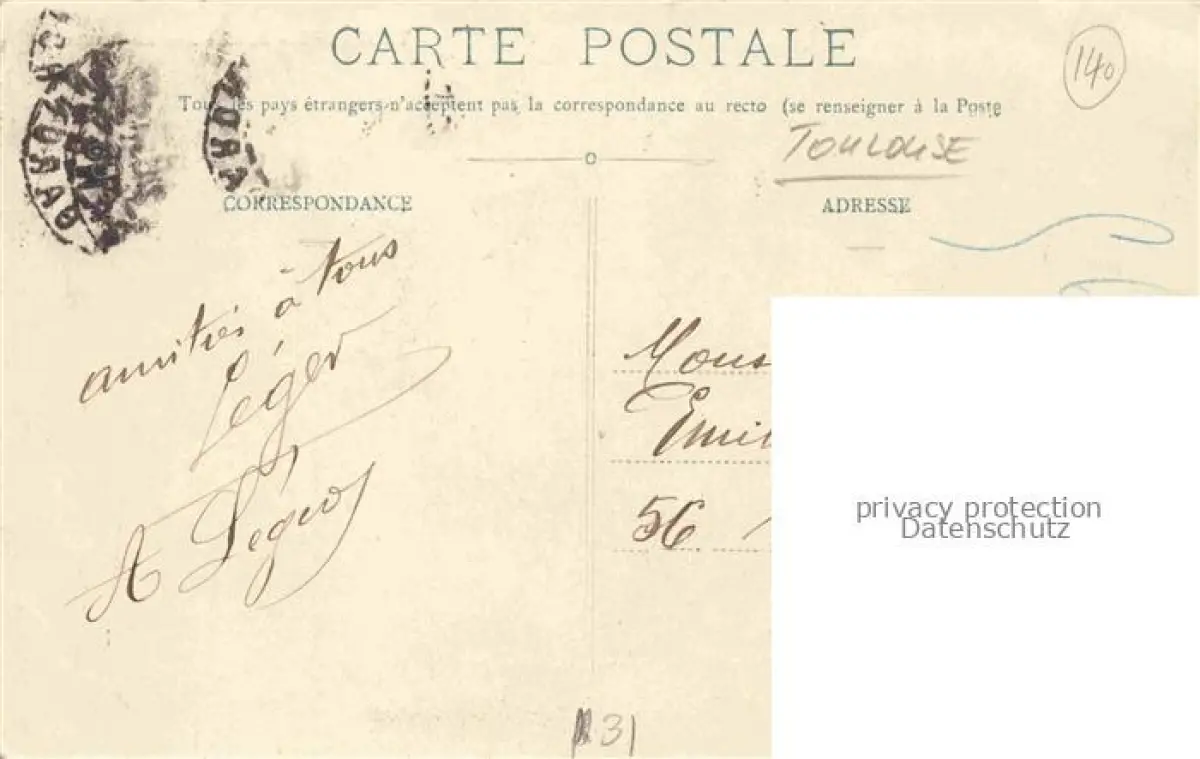 CARTE POSTALE
140
Tous les pays étrangers n'acceptent pas la correspondance au recto (se renseigner à la Poste
TOULOUSE
CORRESPONDANCE
ADRESSE
amitiés à tous
Léger
A Léger
Mons
Emil
56
31
privacy protection
Datenschutz